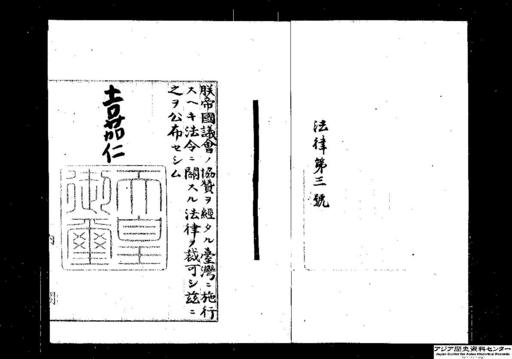 法律第三號
朕帝國議會ノ協贊ヲ經タル臺灣ニ施行
スヘキ法令ニ關スル法律ヲ裁可シ茲ニ
之ヲ公布セシム
嘉仁
天皇
御璽
内閣
アジア歴史資料センター
Japan Center for Asian Historical Records